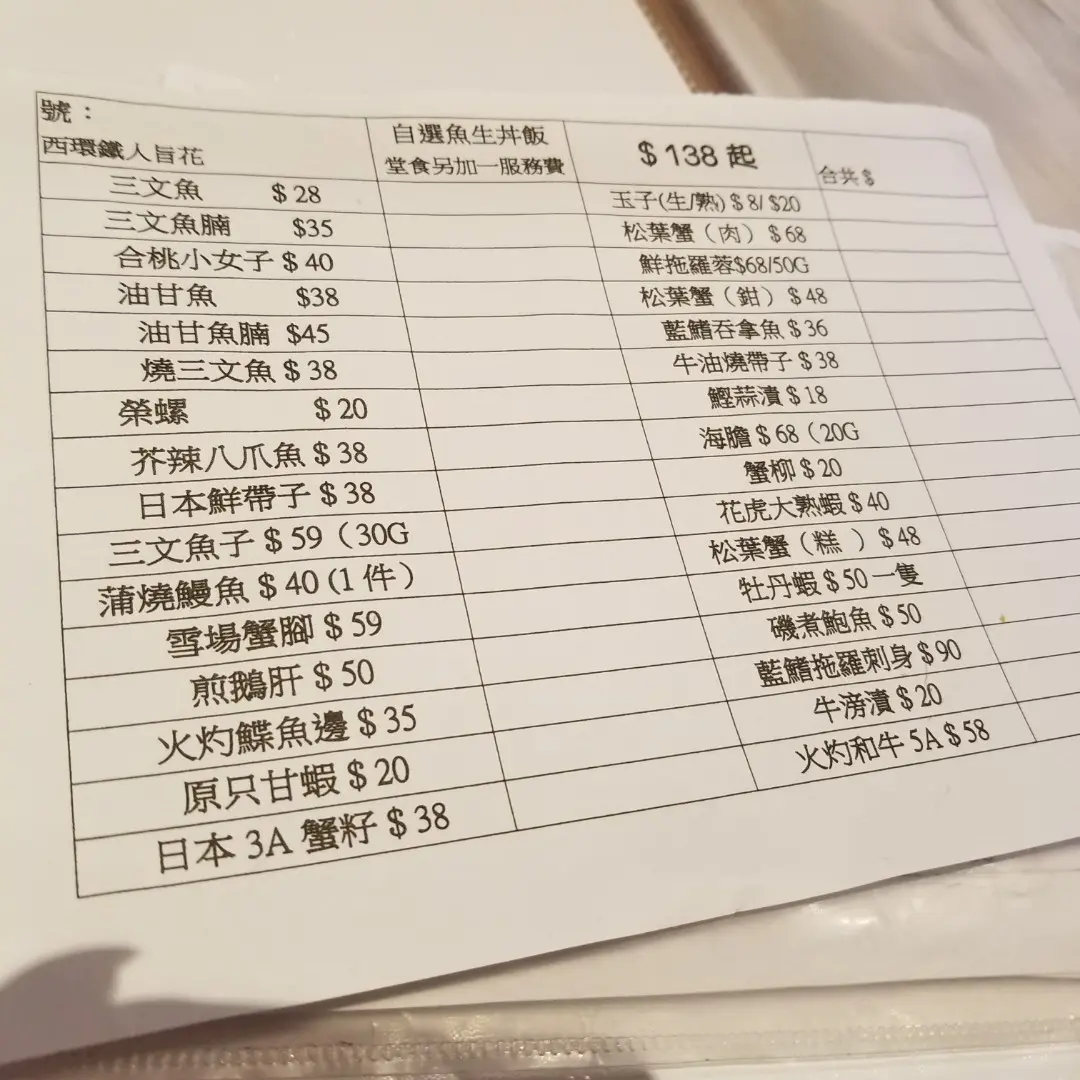 號：
西環鐵人旨花
自選魚生丼飯
堂食另加一服務費
$138 起
合共 $
三文魚 $28
玉子(生/熟) $8/ $20
三文魚腩 $35
松葉蟹（肉） $68
合桃小女子 $40
鮮拖羅蓉$68/50G
油甘魚 $38
松葉蟹（鉗） $48
油甘魚腩 $45
藍鰭吞拿魚 $36
燒三文魚 $38
牛油燒帶子 $38
榮螺 $20
鰹蒜漬 $18
芥辣八爪魚 $38
海膽 $68（20G
日本鮮帶子 $38
蟹柳 $20
三文魚子 $59（30G
花虎大熟蝦 $40
蒲燒鰻魚 $40 (1 件）
松葉蟹（糕 ） $48
雪場蟹腳 $59
牡丹蝦 $50 一隻
煎鵝肝 $50
磯煮鮑魚 $50
火灼鰈魚邊 $35
藍鰭拖羅刺身 $90
原只甘蝦 $20
牛滂漬 $20
日本 3A 蟹籽 $38
火灼和牛 5A $58